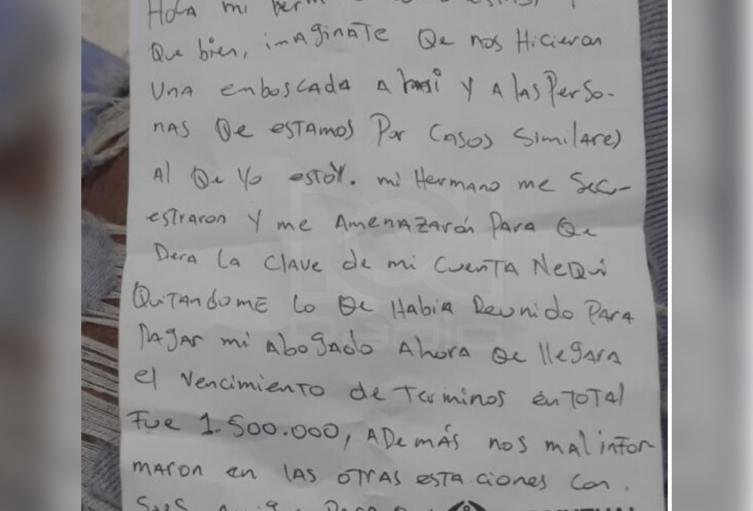 Hola mi
Que bien, imaginate Qe nos Hicieron
Una emboscada a y A las Perso-
nas Qe estamos Por Casos Similares
Al Qe Yo estoy. mi Hermano me Secu-
estraron Y me Amenazarón Para Qe
Dera la clave de mi cuenta NeQui
Quitandome lo Qe Habia Reunido Para
Pagar mi Abogado Ahora Qe llegara
el Vencimiento de Terminos en TOTAl
Fue 1.500.000, ADemás nos mal infor
maron en lAs otras estaciones con.
RCN
Radio